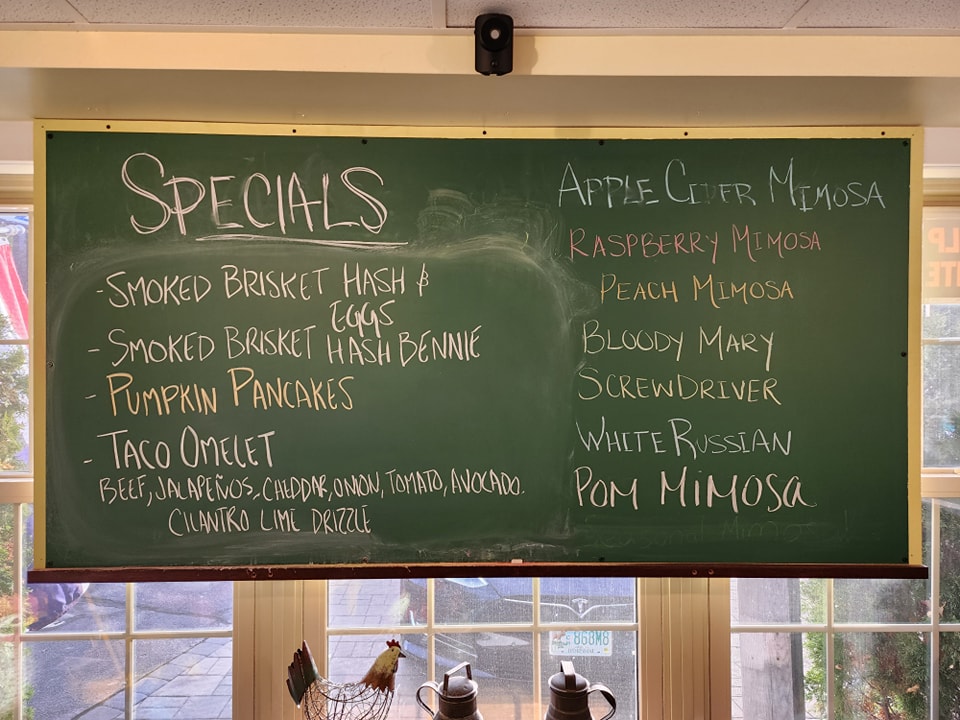 SPECIALS
-SMOKED BRISKET HASH &
EGGS
- SMOKED BRISKET HASH BENNIE
- PUMPKIN PANCAKES
- TACO OMELET
BEEF, JALAPEÑOS, CHEDDAR, ONION, TOMATO, AVOCADO.
CILANTRO LIME DRIZZLE
APPLE CIDER MIMOSA
RASPBERRY MIMOSA
PEACH MIMOSA
BLOODY MARY
SCREWDRIVER
WHITE RUSSIAN
POM MIMOSA